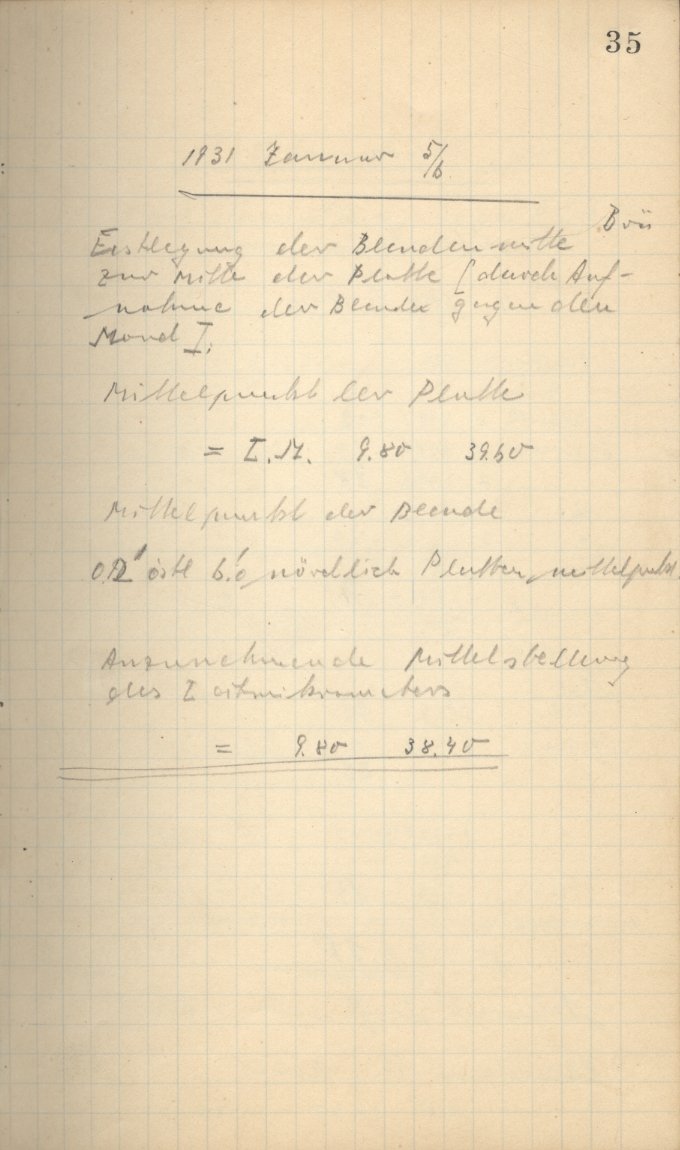 35
1931 Januar 5/6
Brü
Festlegung der Blendenmitte
zur Mitte der Platte (durch Auf-
nahme der Blende gegen den
Mond I.
Mittelpunkt der Platte
= L.M. 9.80 39.60
Mittelpunkt der Blende
östl 6.'0 nördlich Plattenmittelpunkt
Anzunehmende Mittelstellung
des Leitmikrometers
= 9.80 38.40